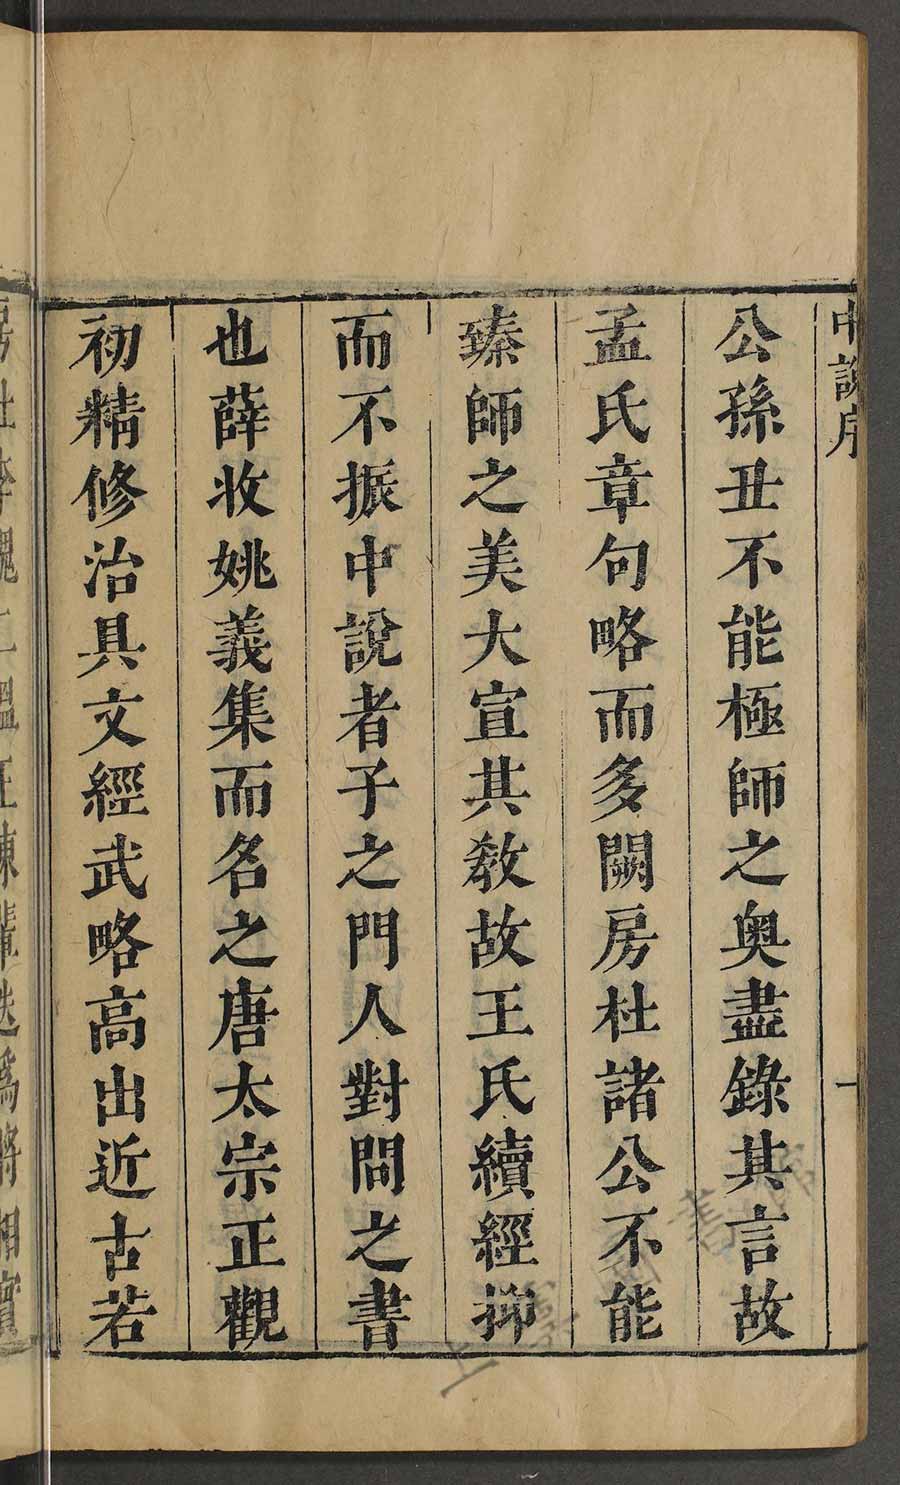 中說序
一
公孫丑不能極師之奧盡錄其言故
孟氏章句略而多闕房杜諸公不能
臻師之美大宣其敎故王氏續經抑
而不振中說者子之門人對問之書
也薛收姚義集而名之唐太宗正觀
初精修治具文經武略高出近古若